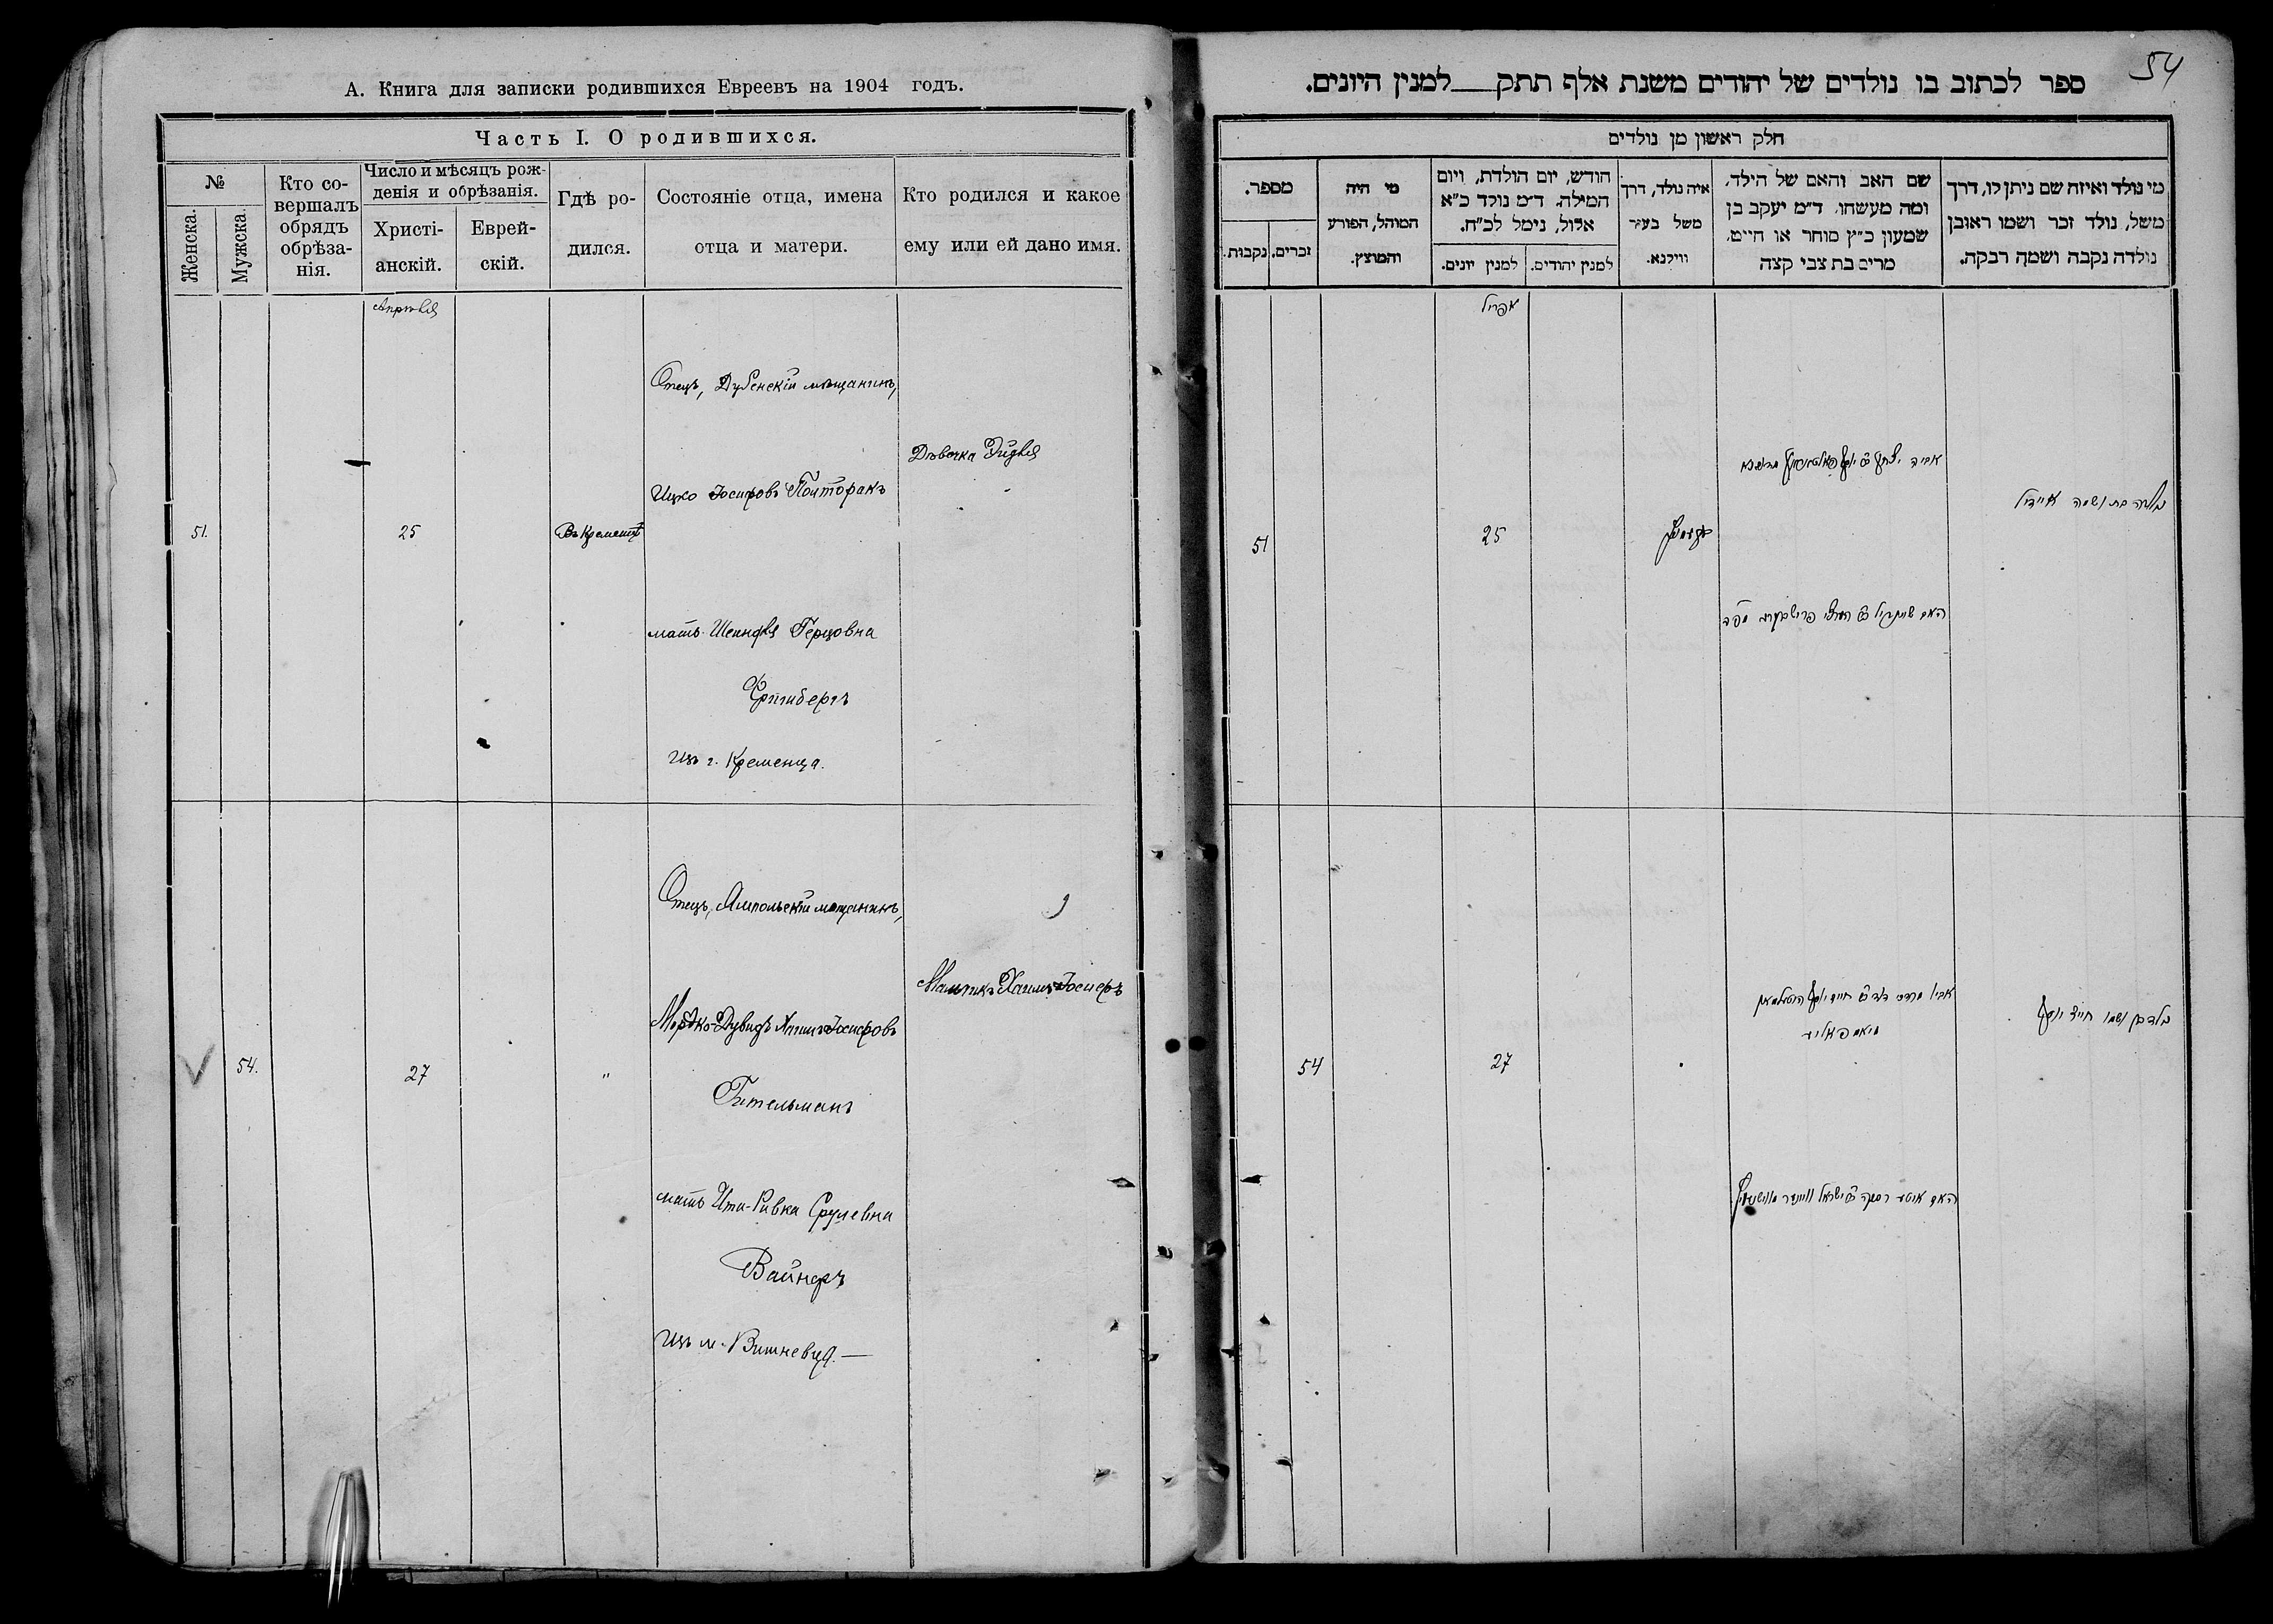 А. Книга для записки родившихся Евреевъ на 1904 годъ.
Часть I. О родившихся.
№
Женска.
Мужска.
Кто со-
вершалъ
обрядъ
обрѣза-
нія.
Число и мѣсяцъ рож-
денія и обрѣзанія.
Христі-
анскій.
Еврей-
скій.
Гдѣ ро-
дился.
Состояніе отца, имена
отца и матери.
Кто родился и какое
ему или ей дано имя.
Апрѣля
51.
25
Въ Кременцѣ
Отецъ, Дубенскій мѣщанинъ,
Ицко Іосифовъ Полторакъ
мать Шейндля Герцовна
из г. Кременца.
Дѣвочка Эйдля
54.
27
"
Отецъ, Ямпольскій мѣщанинъ,
Мордко-Дувидъ Хаимъ-Іосифовъ
Гительманъ
мать Ити-Ривка Срулевна
Вайнеръ
изъ м. Вишневца. —
Мальчикъ Хаимъ-Іосифъ
54
ספר לכתוב בו נולדים של יהודים משנת אלף תתק___למנין היונים.
חלק ראשון מן נולדים
מי נולד ואיזה שם ניתן לו, דרך
משל, נולד זכר ושמו ראובן
נולדה נקבה ושמה רבקה.
שם האב והאם של הילד,
ומה מעשהו. ד״מ יעקב בן
שמעון כ״ץ סוחר או חייט,
מרים בת צבי קצה
איה נולד, דרך
משל בעיר
ווילנא.
חודש, יום הולדת, ויום
המילה. ד״מ נולד כ״א
אלול, נימל לכ״ח.
למנין יהודים.
למנין יונים.
מי היה
המוהל, הפורע
והמוצץ.
מספר.
זכרים.
נקבות.
אפריל
51
25
נולדה בת ושמה איידיל
54
27
נולד בן ושמו חיים יוסף